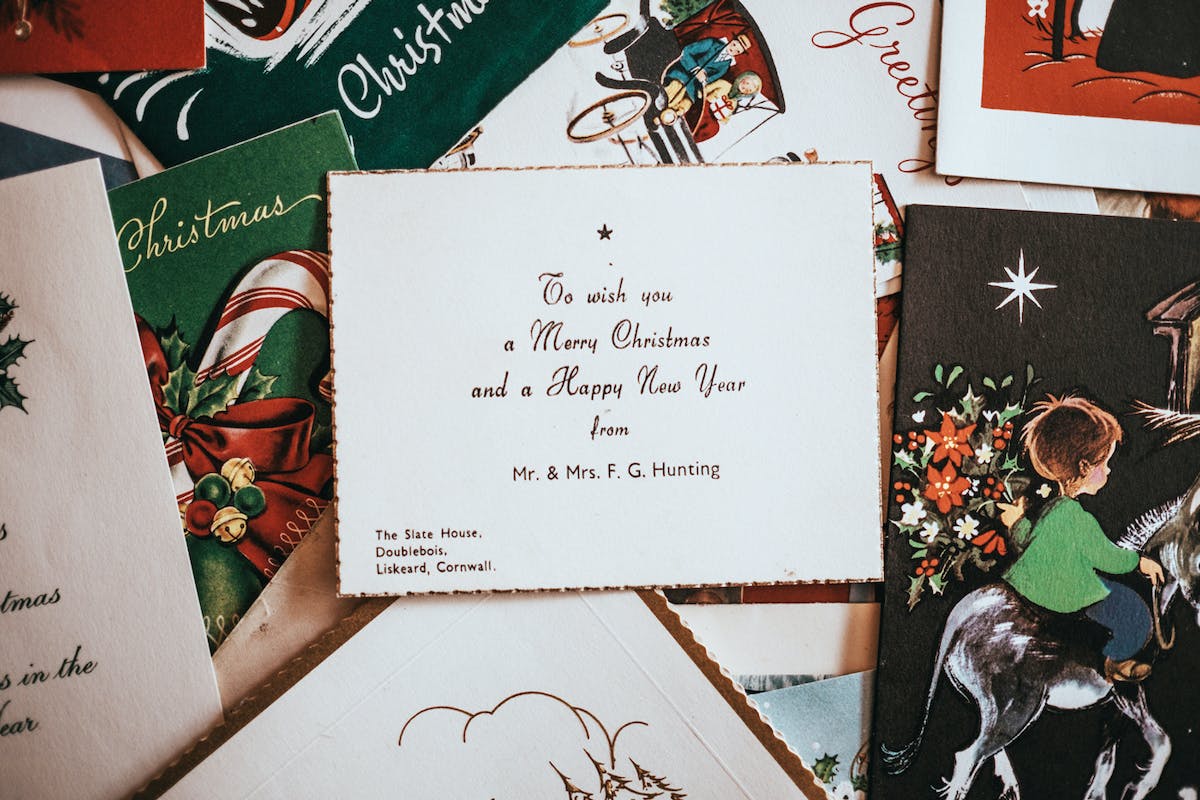 Christm
Greeting
Christmas
To wish you
a Merry Christmas
and a Happy New Year
from
Mr. & Mrs. F. G. Hunting
The Slate House,
Doublebois,
Liskeard, Cornwall.
s
tmas
s in the
ear